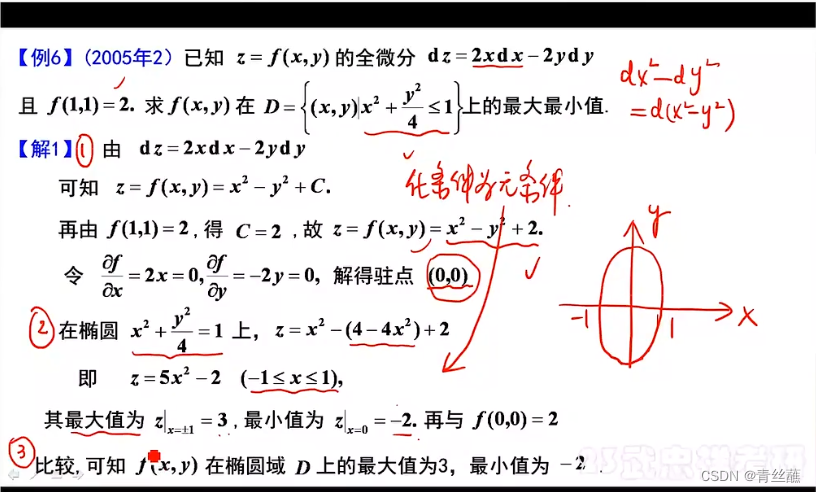 【例6】(2005年2) 已知 z = f(x,y) 的全微分 dz = 2xdx − 2ydy
且 f(1,1) = 2. 求 f(x,y) 在 D = {(x,y)|x² + y²/4 ≤ 1} 上的最大最小值.
dx² − dy²
= d(x² − y²)
【解1】① 由 dz = 2xdx − 2ydy
可知 z = f(x,y) = x² − y² + C.
化条件为无条件.
再由 f(1,1) = 2, 得 C = 2, 故 z = f(x,y) = x² − y² + 2.
令 ∂f/∂x = 2x = 0, ∂f/∂y = −2y = 0, 解得驻点 (0,0)
y
−1 1 x
② 在椭圆 x² + y²/4 = 1 上, z = x² − (4 − 4x²) + 2
即 z = 5x² − 2 (−1 ≤ x ≤ 1),
其最大值为 z|x=±1 = 3, 最小值为 z|x=0 = −2. 再与 f(0,0) = 2
③ 比较, 可知 f(x,y) 在椭圆域 D 上的最大值为3, 最小值为 −2.
CSDN @青丝蘸